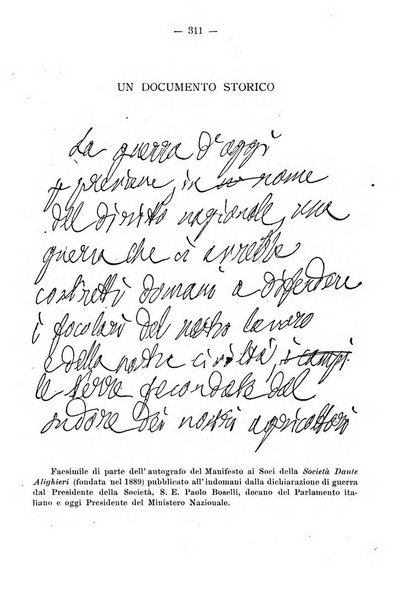 — 311 —
UN DOCUMENTO STORICO
La guerra d'oggi
previene, in nome
del diritto nazionale, una
guerra che ci avrebbe
costretti domani a difendere
i focolari del nostro lavoro
e della nostra civiltà, i campi
le terre fecondate dal
sudore dei nostri agricoltori
Facsimile di parte dell'autografo del Manifesto ai Soci della Società Dante
Alighieri (fondata nel 1889) pubblicato all'indomani dalla dichiarazione di guerra
dal Presidente della Società, S. E. Paolo Boselli, decano del Parlamento ita-
liano e oggi Presidente del Ministero Nazionale.